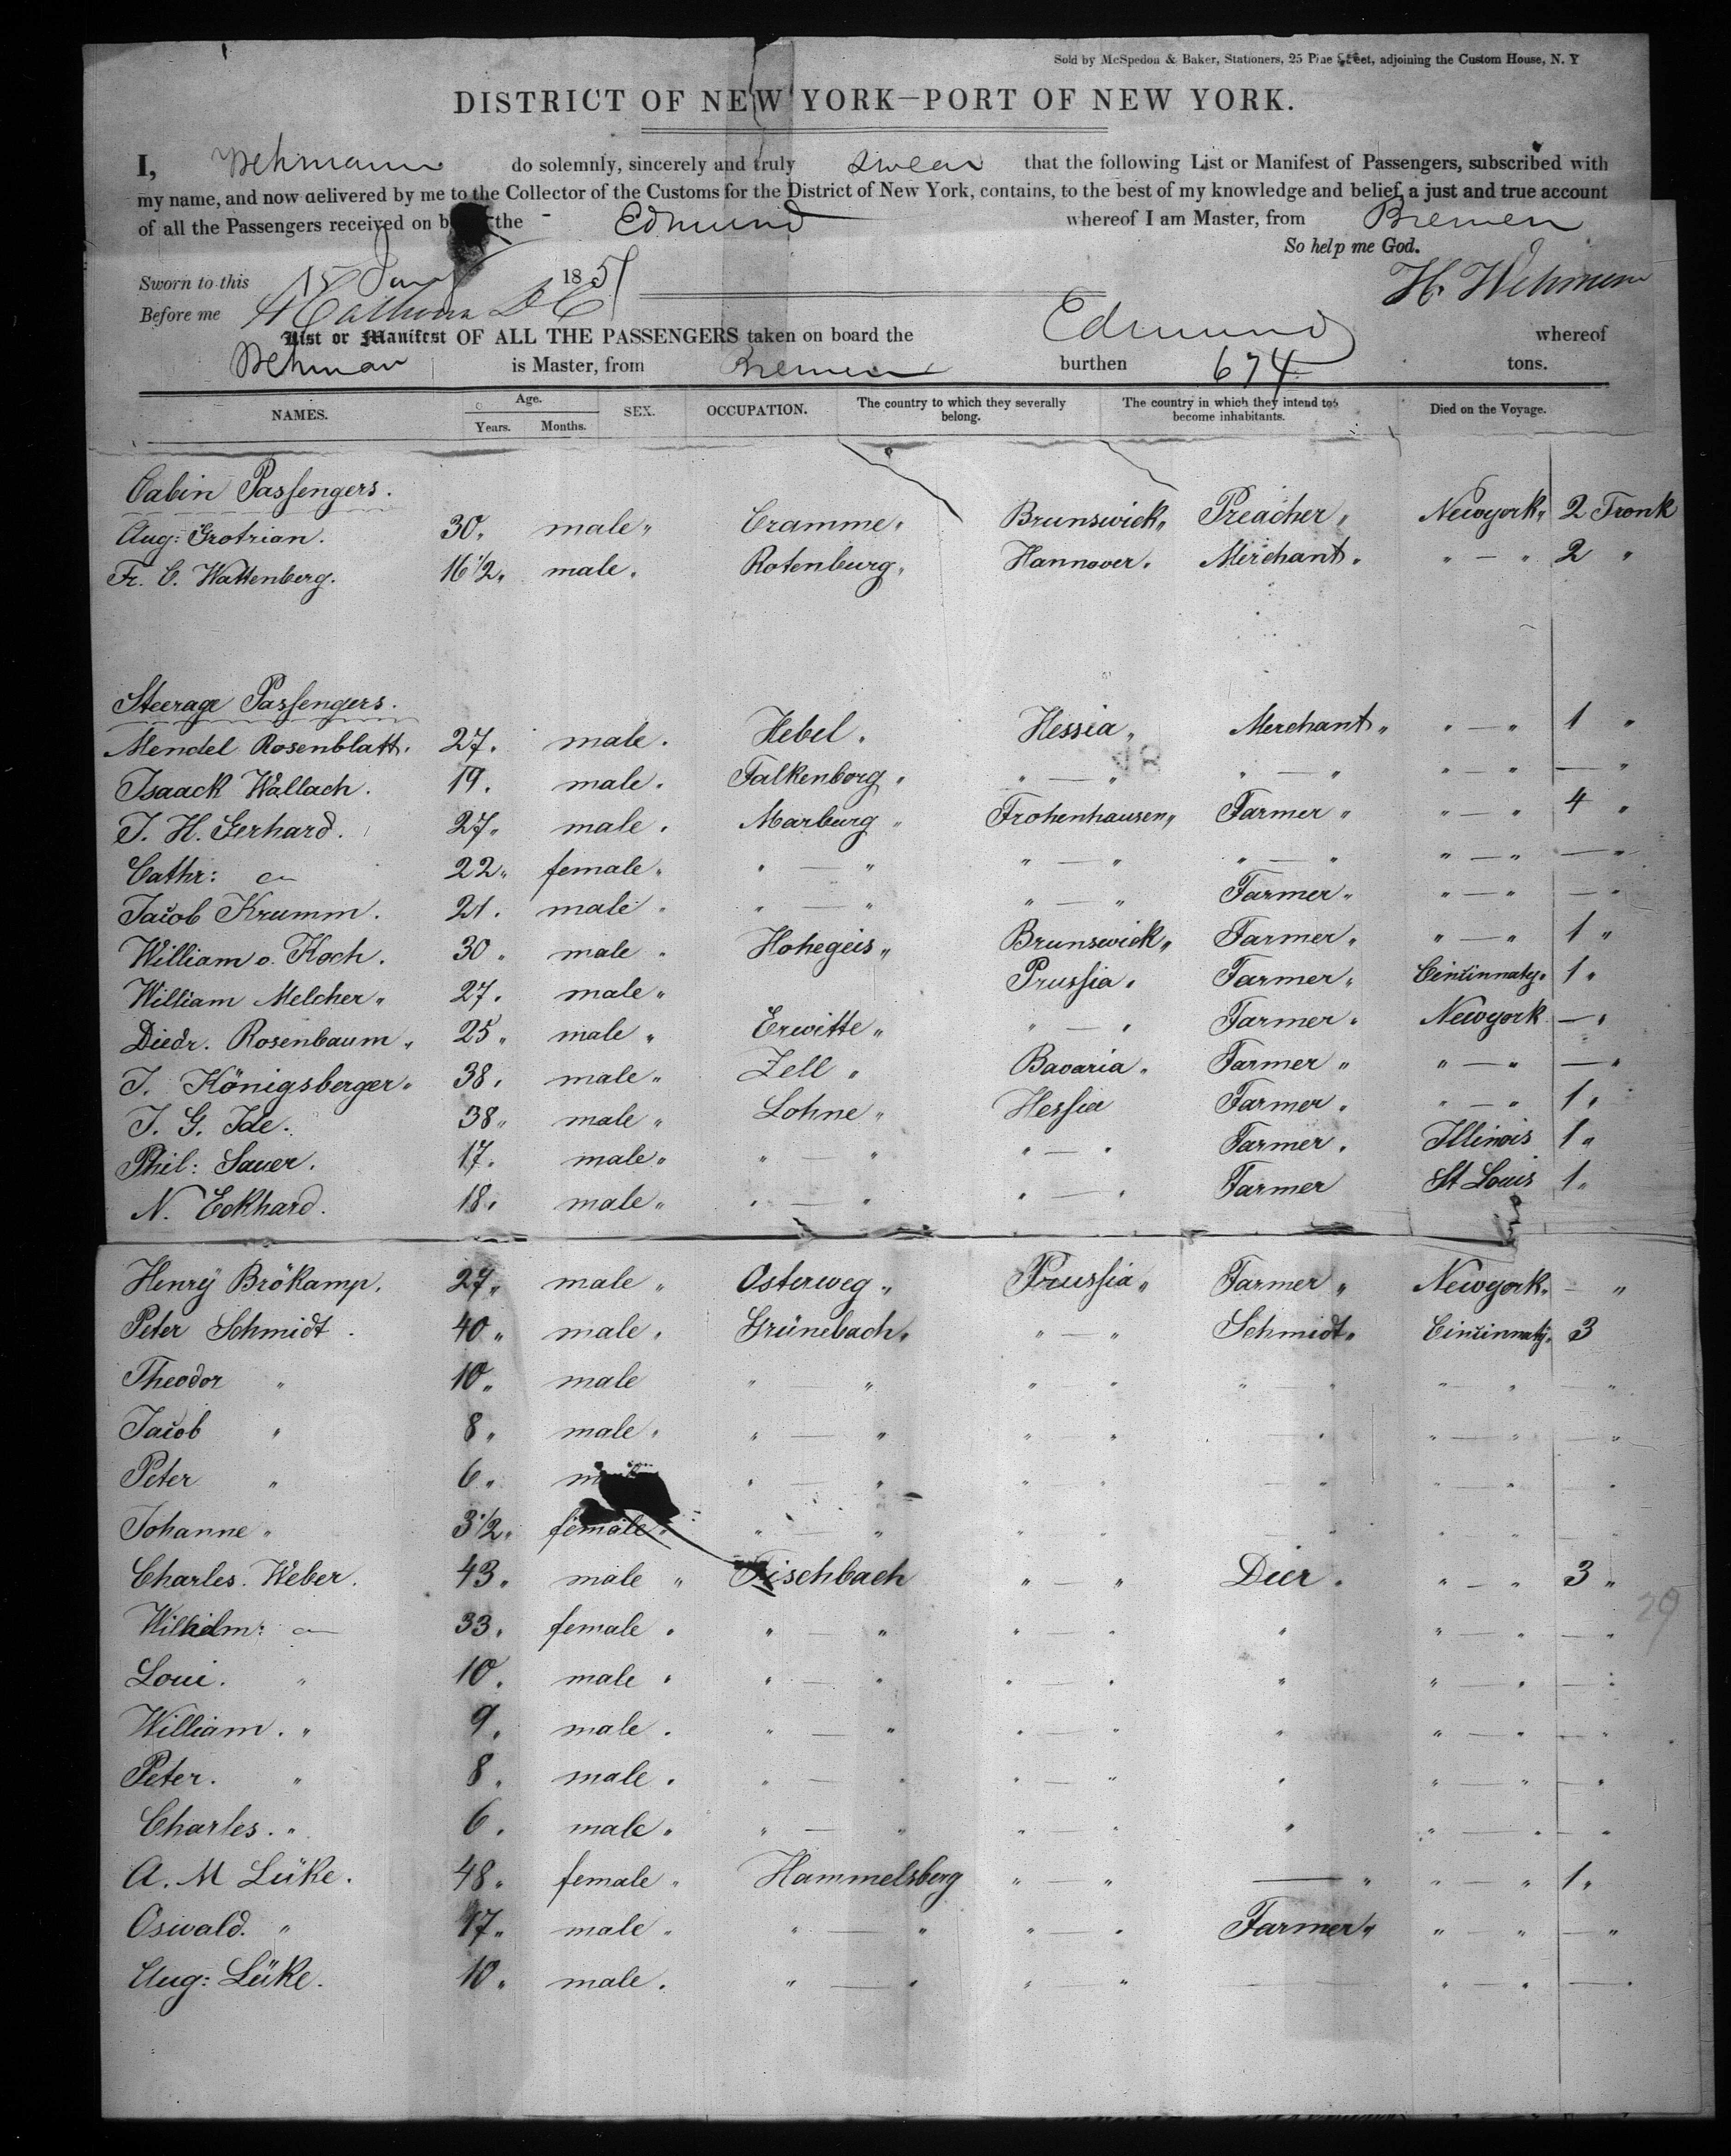 Sold by McSpedon & Baker, Stationers, 25 Pine Street, adjoining the Custom House, N. Y
DISTRICT OF NEW YORK—PORT OF NEW YORK.
I, Wehmann do solemnly, sincerely and truly swear that the following List or Manifest of Passengers, subscribed with
my name, and now delivered by me to the Collector of the Customs for the District of New York, contains, to the best of my knowledge and belief, a just and true account
of all the Passengers received on b the Edmund whereof I am Master, from Bremen
So help me God.
Sworn to this 15 Jany 1851 H. Wehmann
Before me
List or Manifest OF ALL THE PASSENGERS taken on board the Edmund whereof
Wehman is Master, from Bremen burthen 674 tons.
NAMES. Age. Years. Months. SEX. OCCUPATION. The country to which they severally belong. The country in which they intend to become inhabitants. Died on the Voyage.
Cabin Passengers.
Aug: Grotrian. 30 " male " Cramme " Brunswick " Preacher " Newyork " 2 Tronk
Fr. C. Wattenberg. 16 1/2 " male " Rotenburg " Hannover " Merchant " " — " 2 "
Steerage Passengers.
Mendel Rosenblatt. 27 " male " Hebel " Hessia " Merchant " " — " 1 "
48
Isaack Wallach. 19 " male " Falkenborg " " — " " — " " — " — "
J. H. Gerhard. 27 " male " Marburg " Frohenhausen " Farmer " " — " 4 "
Cathr: 22 " female " " — " " — " " — " " — " — "
Jacob Krumm. 21 " male " " — " " — " Farmer " " — " — "
William o. Koch. 30 " male " Hohegeis " Brunswick " Farmer " " — " 1 "
William Melcher " 27 " male " Prussia " Farmer " Cincinnaty " 1 "
Diedr. Rosenbaum " 25 " male " Erwitte " " — " Farmer " Newyork — "
J. Königsberger " 38 " male " Zell " Bavaria " Farmer " " — " — "
J. G. Ide. 38 " male " Lohne " Hessia Farmer " " — " 1 "
Phil: Sauer. 17 " male " " — " " — " Farmer " Illinois 1 "
N. Eckhard. 18 " male " " — " " — " Farmer St Louis 1 "
Henry Brökamp. 27 " male " Osterweg " Prussia " Farmer " Newyork " — "
Peter Schmidt. 40 " male " Grünebach " " — " Schmidt " Cincinnaty " 3
Theodor " 10 " male " — " " — " " — " " — " — "
Jacob " 8 " male " " — " " — " — " " — " — "
Peter " 6 " " — " " — " — " " — " — "
Johanne " 3 1/2 " female " " — " " — " — " " — " — "
Charles. Weber. 43 " male " Fischbach " — " Dier " " — " 3 "
29
Wilhelm: 33 " female " " — " " — " " " — " — "
Loui. " 10 " male " " — " " — " " " — " — "
William. " 9 " male " " — " " — " " " — " — "
Peter. " 8 " male " " — " " — " " " — " — "
Charles. " 6 " male " " — " " — " " " — " — "
A. M Lüke. 48 " female " Hammelsberg " — " — " " — " 1 "
Oswald. " 17 " male " " — " " — " Farmer " " — " — "
Aug: Lüke. 10 " male " " — " " — " — " — " — "